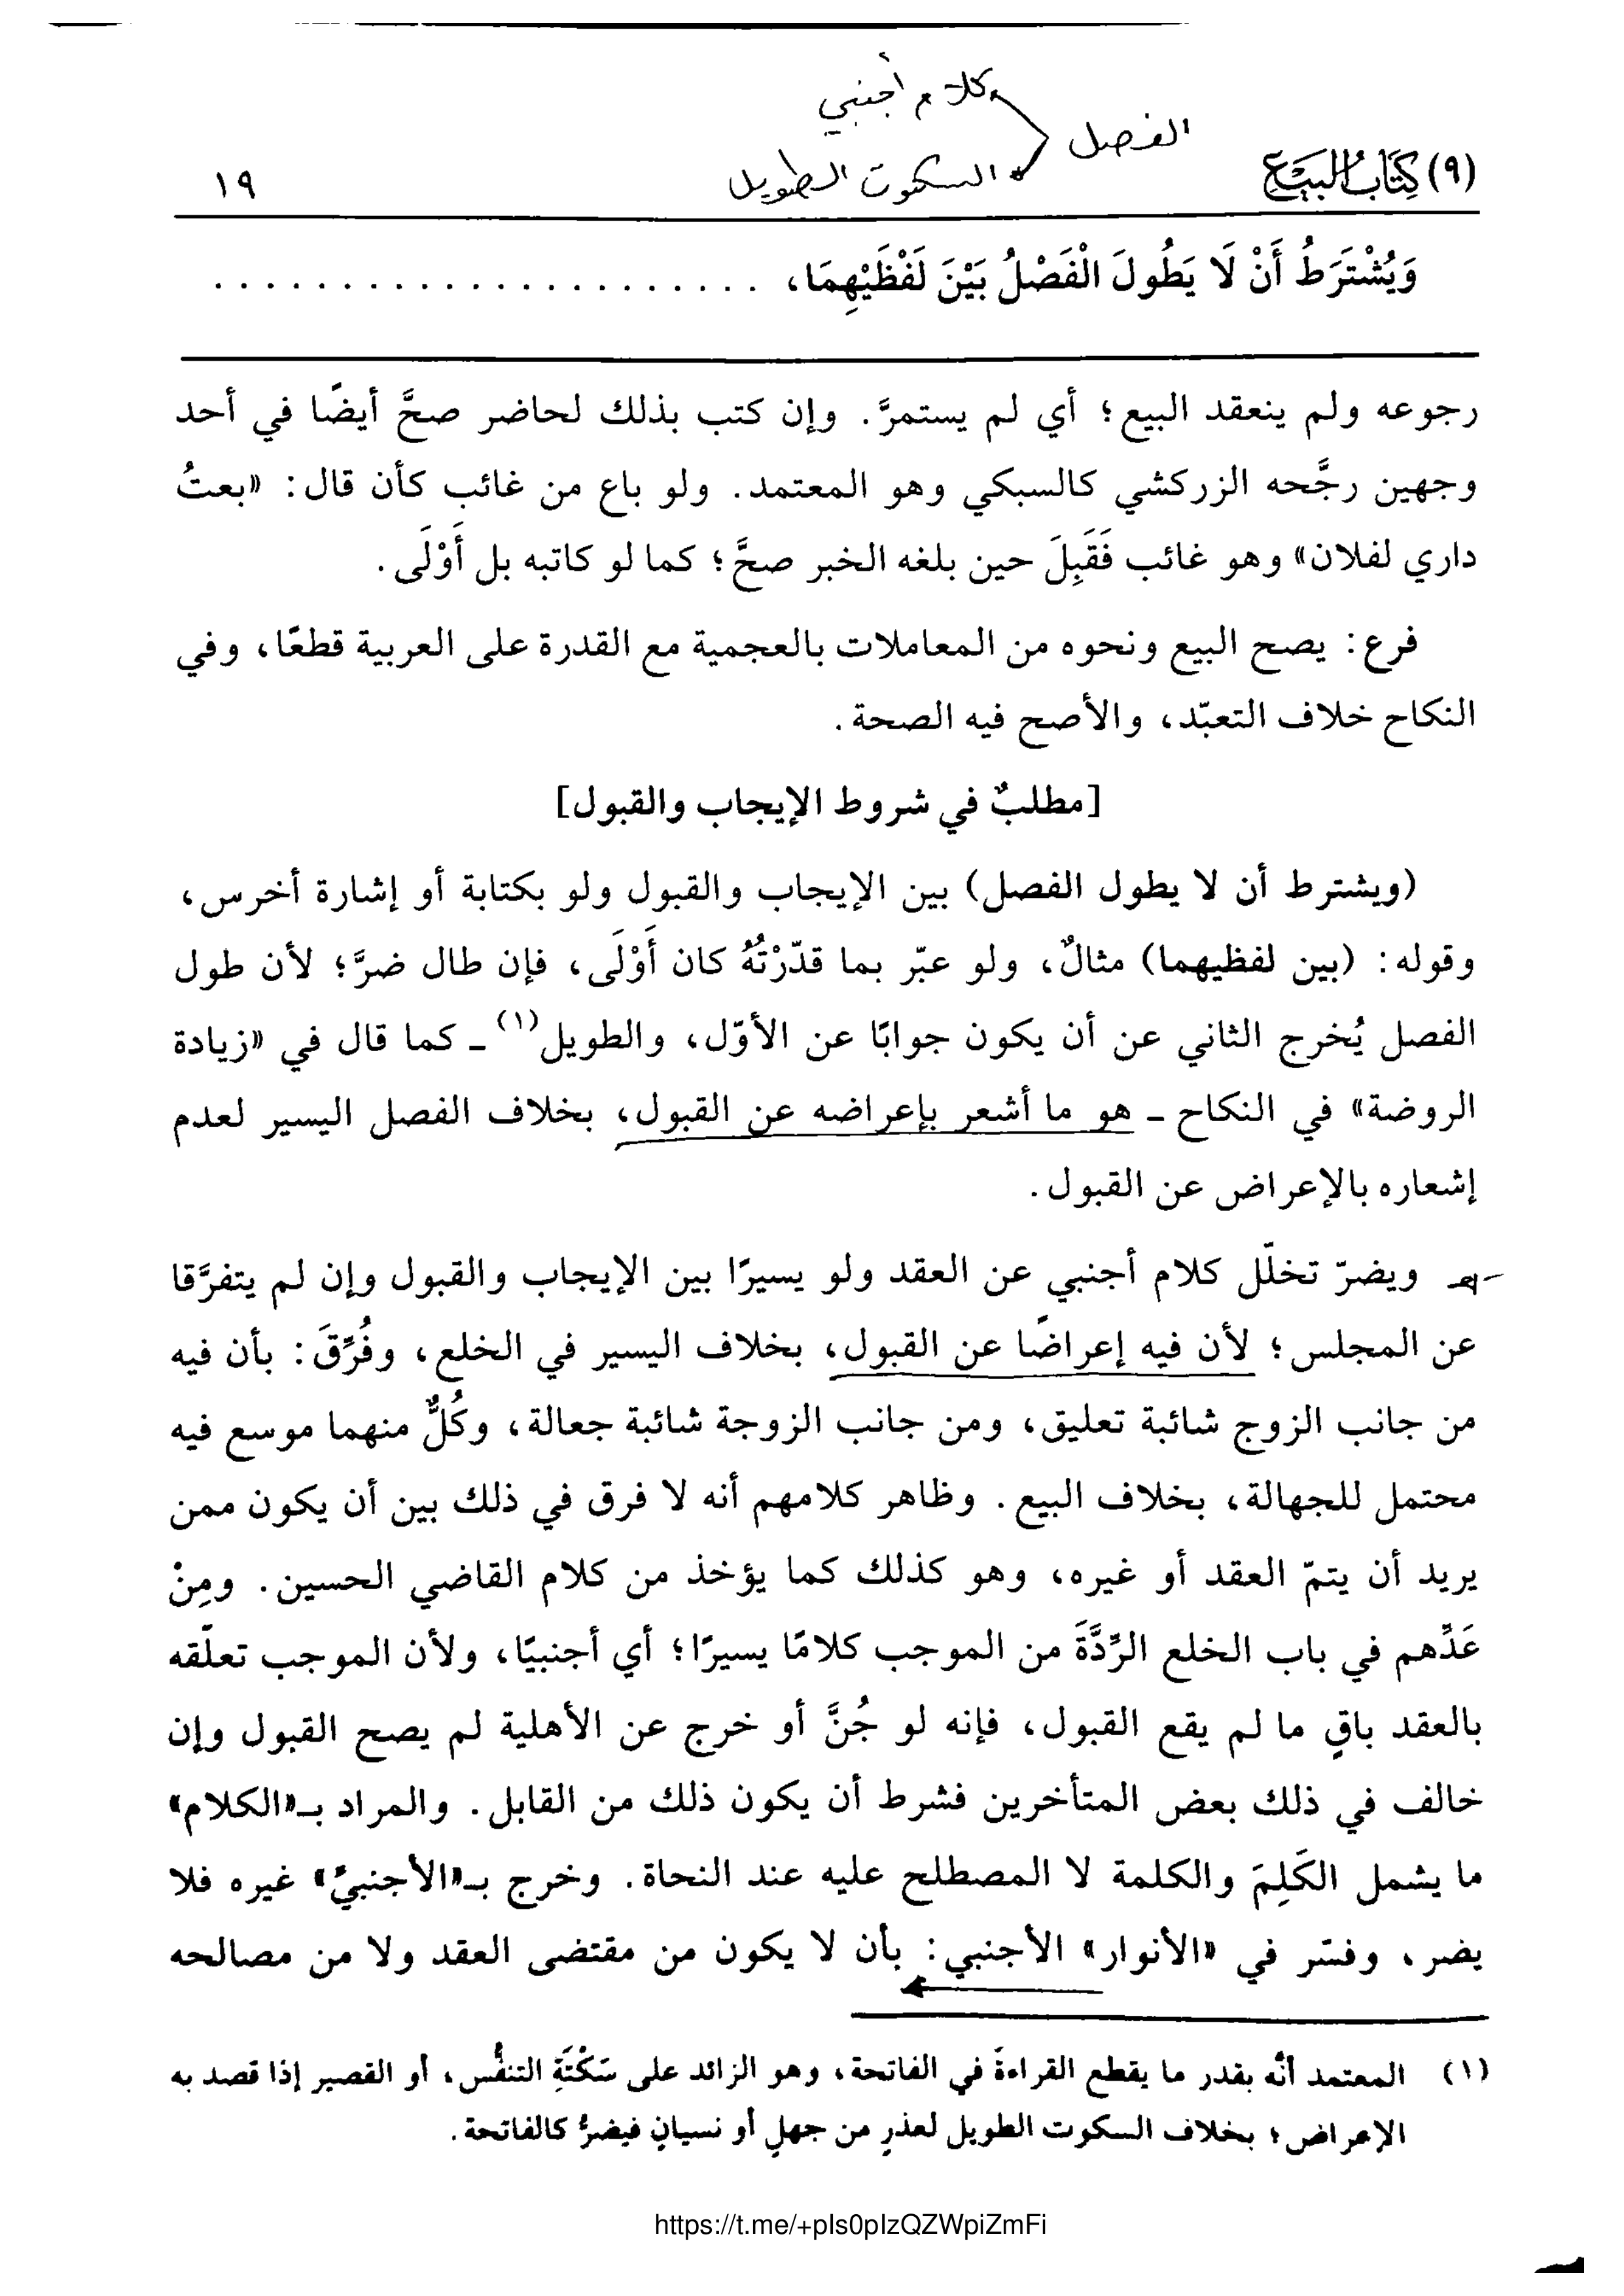 كلام أجنبي
الفصل
السكوت الطويل
(٩) كِتَابُ البَيْعِ
١٩
وَيُشْتَرَطُ أَنْ لَا يَطُولَ الْفَصْلُ بَيْنَ لَفْظَيْهِمَا، . . . . . . . . . . . . . . . . . . . . . .
رجوعه ولم ينعقد البيع؛ أي لم يستمرَّ. وإن كتب بذلك لحاضر صحَّ أيضًا في أحد
وجهين رجَّحه الزركشي كالسبكي وهو المعتمد. ولو باع من غائب كأن قال: «بعتُ
داري لفلان» وهو غائب فَقَبِلَ حين بلغه الخبر صحَّ؛ كما لو كاتبه بل أَوْلَى.
فرع: يصح البيع ونحوه من المعاملات بالعجمية مع القدرة على العربية قطعًا، وفي
النكاح خلاف التعبّد، والأصح فيه الصحة.
[مطلبٌ في شروط الإيجاب والقبول]
(ويشترط أن لا يطول الفصل) بين الإيجاب والقبول ولو بكتابة أو إشارة أخرس،
وقوله: (بين لفظيهما) مثالٌ، ولو عبّر بما قدّرْتُهُ كان أَوْلَى، فإن طال ضرَّ؛ لأن طول
الفصل يُخرج الثاني عن أن يكون جوابًا عن الأوّل، والطويل(١) ـ كما قال في «زيادة
الروضة» في النكاح ـ هو ما أشعر بإعراضه عن القبول، بخلاف الفصل اليسير لعدم
إشعاره بالإعراض عن القبول.
ويضرّ تخلّل كلام أجنبي عن العقد ولو يسيرًا بين الإيجاب والقبول وإن لم يتفرَّقا
عن المجلس؛ لأن فيه إعراضًا عن القبول، بخلاف اليسير في الخلع، وفُرِّقَ: بأن فيه
من جانب الزوج شائبة تعليق، ومن جانب الزوجة شائبة جعالة، وكُلٌّ منهما موسع فيه
محتمل للجهالة، بخلاف البيع. وظاهر كلامهم أنه لا فرق في ذلك بين أن يكون ممن
يريد أن يتمّ العقد أو غيره، وهو كذلك كما يؤخذ من كلام القاضي الحسين. ومِنْ
عَدِّهم في باب الخلع الرِّدَّةَ من الموجب كلامًا يسيرًا؛ أي أجنبيًا، ولأن الموجب تعلّقه
بالعقد باقٍ ما لم يقع القبول، فإنه لو جُنَّ أو خرج عن الأهلية لم يصح القبول وإن
خالف في ذلك بعض المتأخرين فشرط أن يكون ذلك من القابل. والمراد بـ«الكلام»
ما يشمل الكَلِمَ والكلمة لا المصطلح عليه عند النحاة. وخرج بـ«الأجنبيِّ» غيره فلا
يضر، وفسّر في «الأنوار» الأجنبي: بأن لا يكون من مقتضى العقد ولا من مصالحه
(١) المعتمد أنَّه بقدر ما يقطع القراءةَ في الفاتحة، وهو الزائد على سَكْتَةِ التنفُّس، أو القصير إذا قصد به
الإعراض؛ بخلاف السكوت الطويل لعذرٍ من جهلٍ أو نسيانٍ فيضرُّ كالفاتحة.
https://t.me/+pIs0pIzQZWpiZmFi